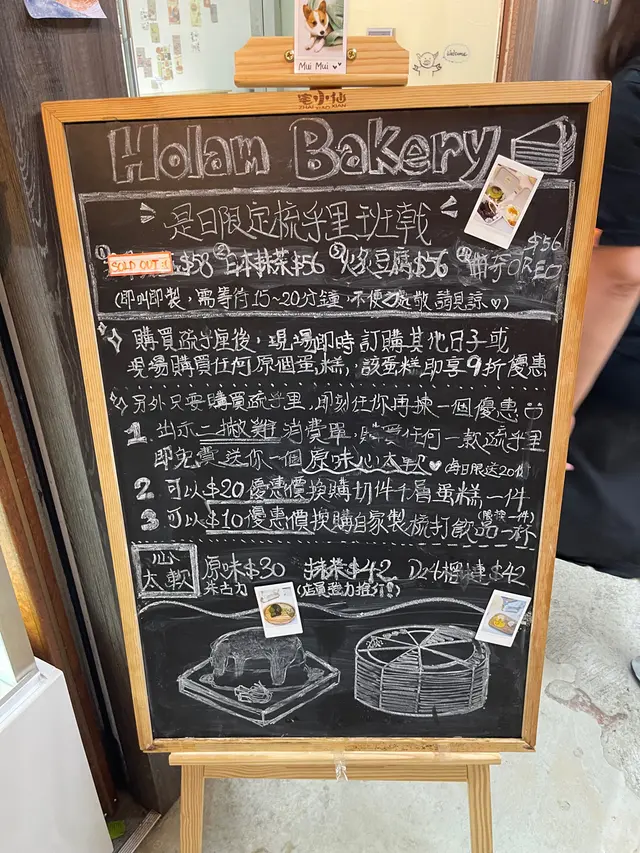 Mui Mui
Welcome
宅小仙
Holam Bakery
是日限定梳乎里班戟
① SOLD OUT $58 ② 日本抹茶$56 ③ 炎豆腐$56 ④ OREO $56
(即叫即製，需等待15~20分鐘，不便之處敬請見諒♡)
購買疏乎厘後，現場即時訂購其他日子或
現場購買任何原個蛋糕，該蛋糕即享9折優惠
另外只要購買疏乎里，即刻任你再揀一個優惠
1. 出示二撇雞消費單，購買任何一款疏乎里
即免費送你一個原味心太軟♥ 每日限送20份
2 可以$20優惠價換購切件千層蛋糕一件
3 可以$10優惠價換購自家製梳打飲品一杯
心太軟 原味$30 抹茶$42 D24榴槤$42
朱古力 (店員強力推介!)